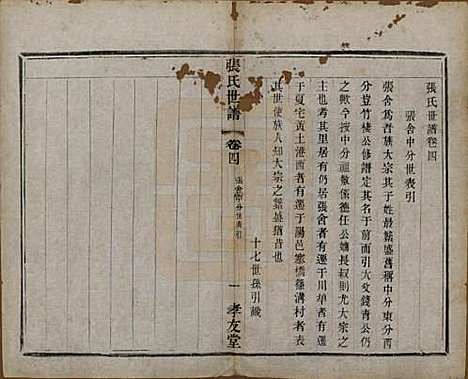 張氏世譜卷四
張舍中分世表引
張舍爲吾族大宗其子姓最繁盛舊稱中分東分西
分荳竹樓公修譜定其名于前而引文錢青公仍
之此今按中分祖敏僖德任公嫡長叔則尤大宗之
主也其里居有仍居張舍者有遷于川華者有遷
于夏宅黃土港西者有遷于陽邑寒橋篠溝村者表
其世使族人知大宗之繁盛猶昔也
十七世孫引識
張氏世譜
卷四
張舍中分世表引
一
孝友堂